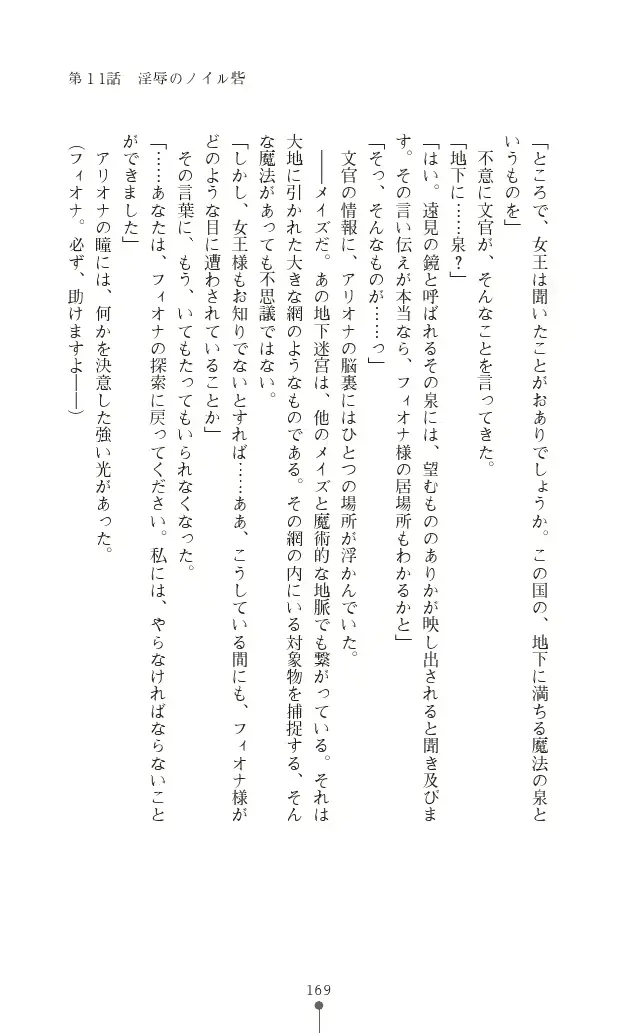 第11話　淫辱のノイル砦
「ところで、女王は聞いたことがおありでしょうか。この国の、地下に満ちる魔法の泉と
いうものを」
　不意に文官が、そんなことを言ってきた。
「地下に……泉？」
「はい。遠見の鏡と呼ばれるその泉には、望むもののありかが映し出されると聞き及びま
す。その言い伝えが本当なら、フィオナ様の居場所もわかるかと」
「そっ、そんなものが……っ」
　文官の情報に、アリオナの脳裏にはひとつの場所が浮かんでいた。
　――メイズだ。あの地下迷宮は、他のメイズと魔術的な地脈でも繋がっている。それは
大地に引かれた大きな網のようなものである。その網の内にいる対象物を捕捉する、そん
な魔法があっても不思議ではない。
「しかし、女王様もお知りでないとすれば……ああ、こうしている間にも、フィオナ様が
どのような目に遭わされていることか」
　その言葉に、もう、いてもたってもいられなくなった。
「……あなたは、フィオナの探索に戻ってください。私には、やらなければならないこと
ができました」
　アリオナの瞳には、何かを決意した強い光があった。
（フィオナ。必ず、助けますよ――）
169